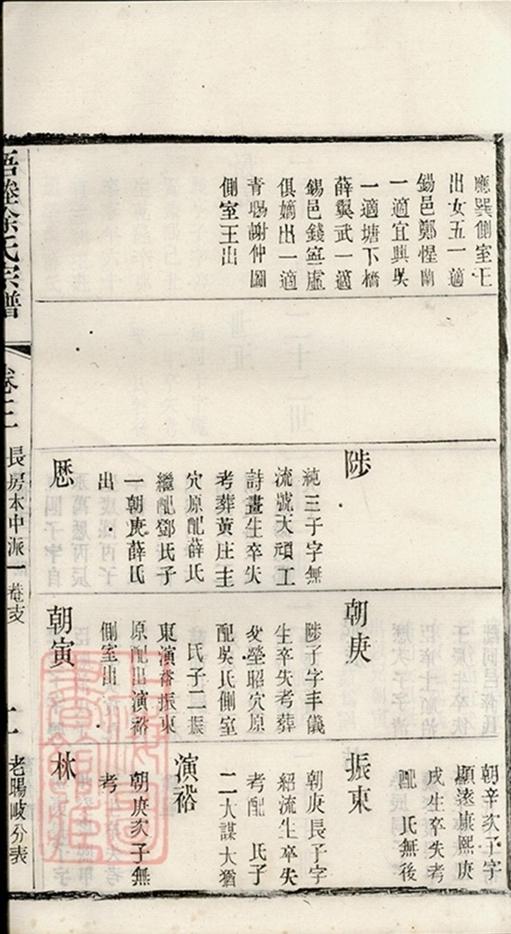 應巽側室王
出女五一適
錫邑鄭惺蘭
一適宜興吳
一適塘下橋
薛翼武一適
錫邑錢寧虛
俱嫡出一適
青暘謝仲圖
側室王出
陟
純三子字無
流號大頑工
詩畫生卒失
考葬黃庄主
穴原配薛氏
繼配鄧氏子
一朝庚薛氏
出
歷
朝庚
陟子字丰儀
生卒失考葬
父塋昭穴原
配吳氏側室
氏子二振
東演裕振東
原配出演裕
側室出
朝寅
朝辛次子字
顯遠康熙庚
戌生卒失考
配 氏無後
振東
朝庚長子字
紹流生卒失
考配 氏子
二大謀大猶
演裕
朝庚次子無
考
林
梧塍徐氏宗譜
卷十二
長房本中派一菴支
老暘岐分表